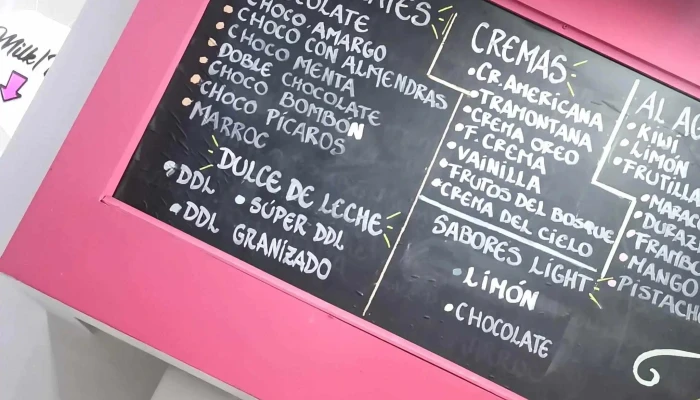 Milk
CHOCOLATE
CHOCO AMARGO
CHOCO CON ALMENDRAS
CHOCO MENTA
DOBLE CHOCOLATE
CHOCO BOMBÓN
CHOCO PÍCAROS
MARROC
DULCE DE LECHE
DDL
SÚPER DDL
DDL GRANIZADO
CREMAS
CR. AMERICANA
TRAMONTANA
CREMA OREO
F. CREMA
VAINILLA
FRUTOS DEL BOSQUE
CREMA DEL CIELO
SABORES LIGHT
LIMÓN
CHOCOLATE
AL
KIWI
LIMÓN
FRUTILLA
MANGO